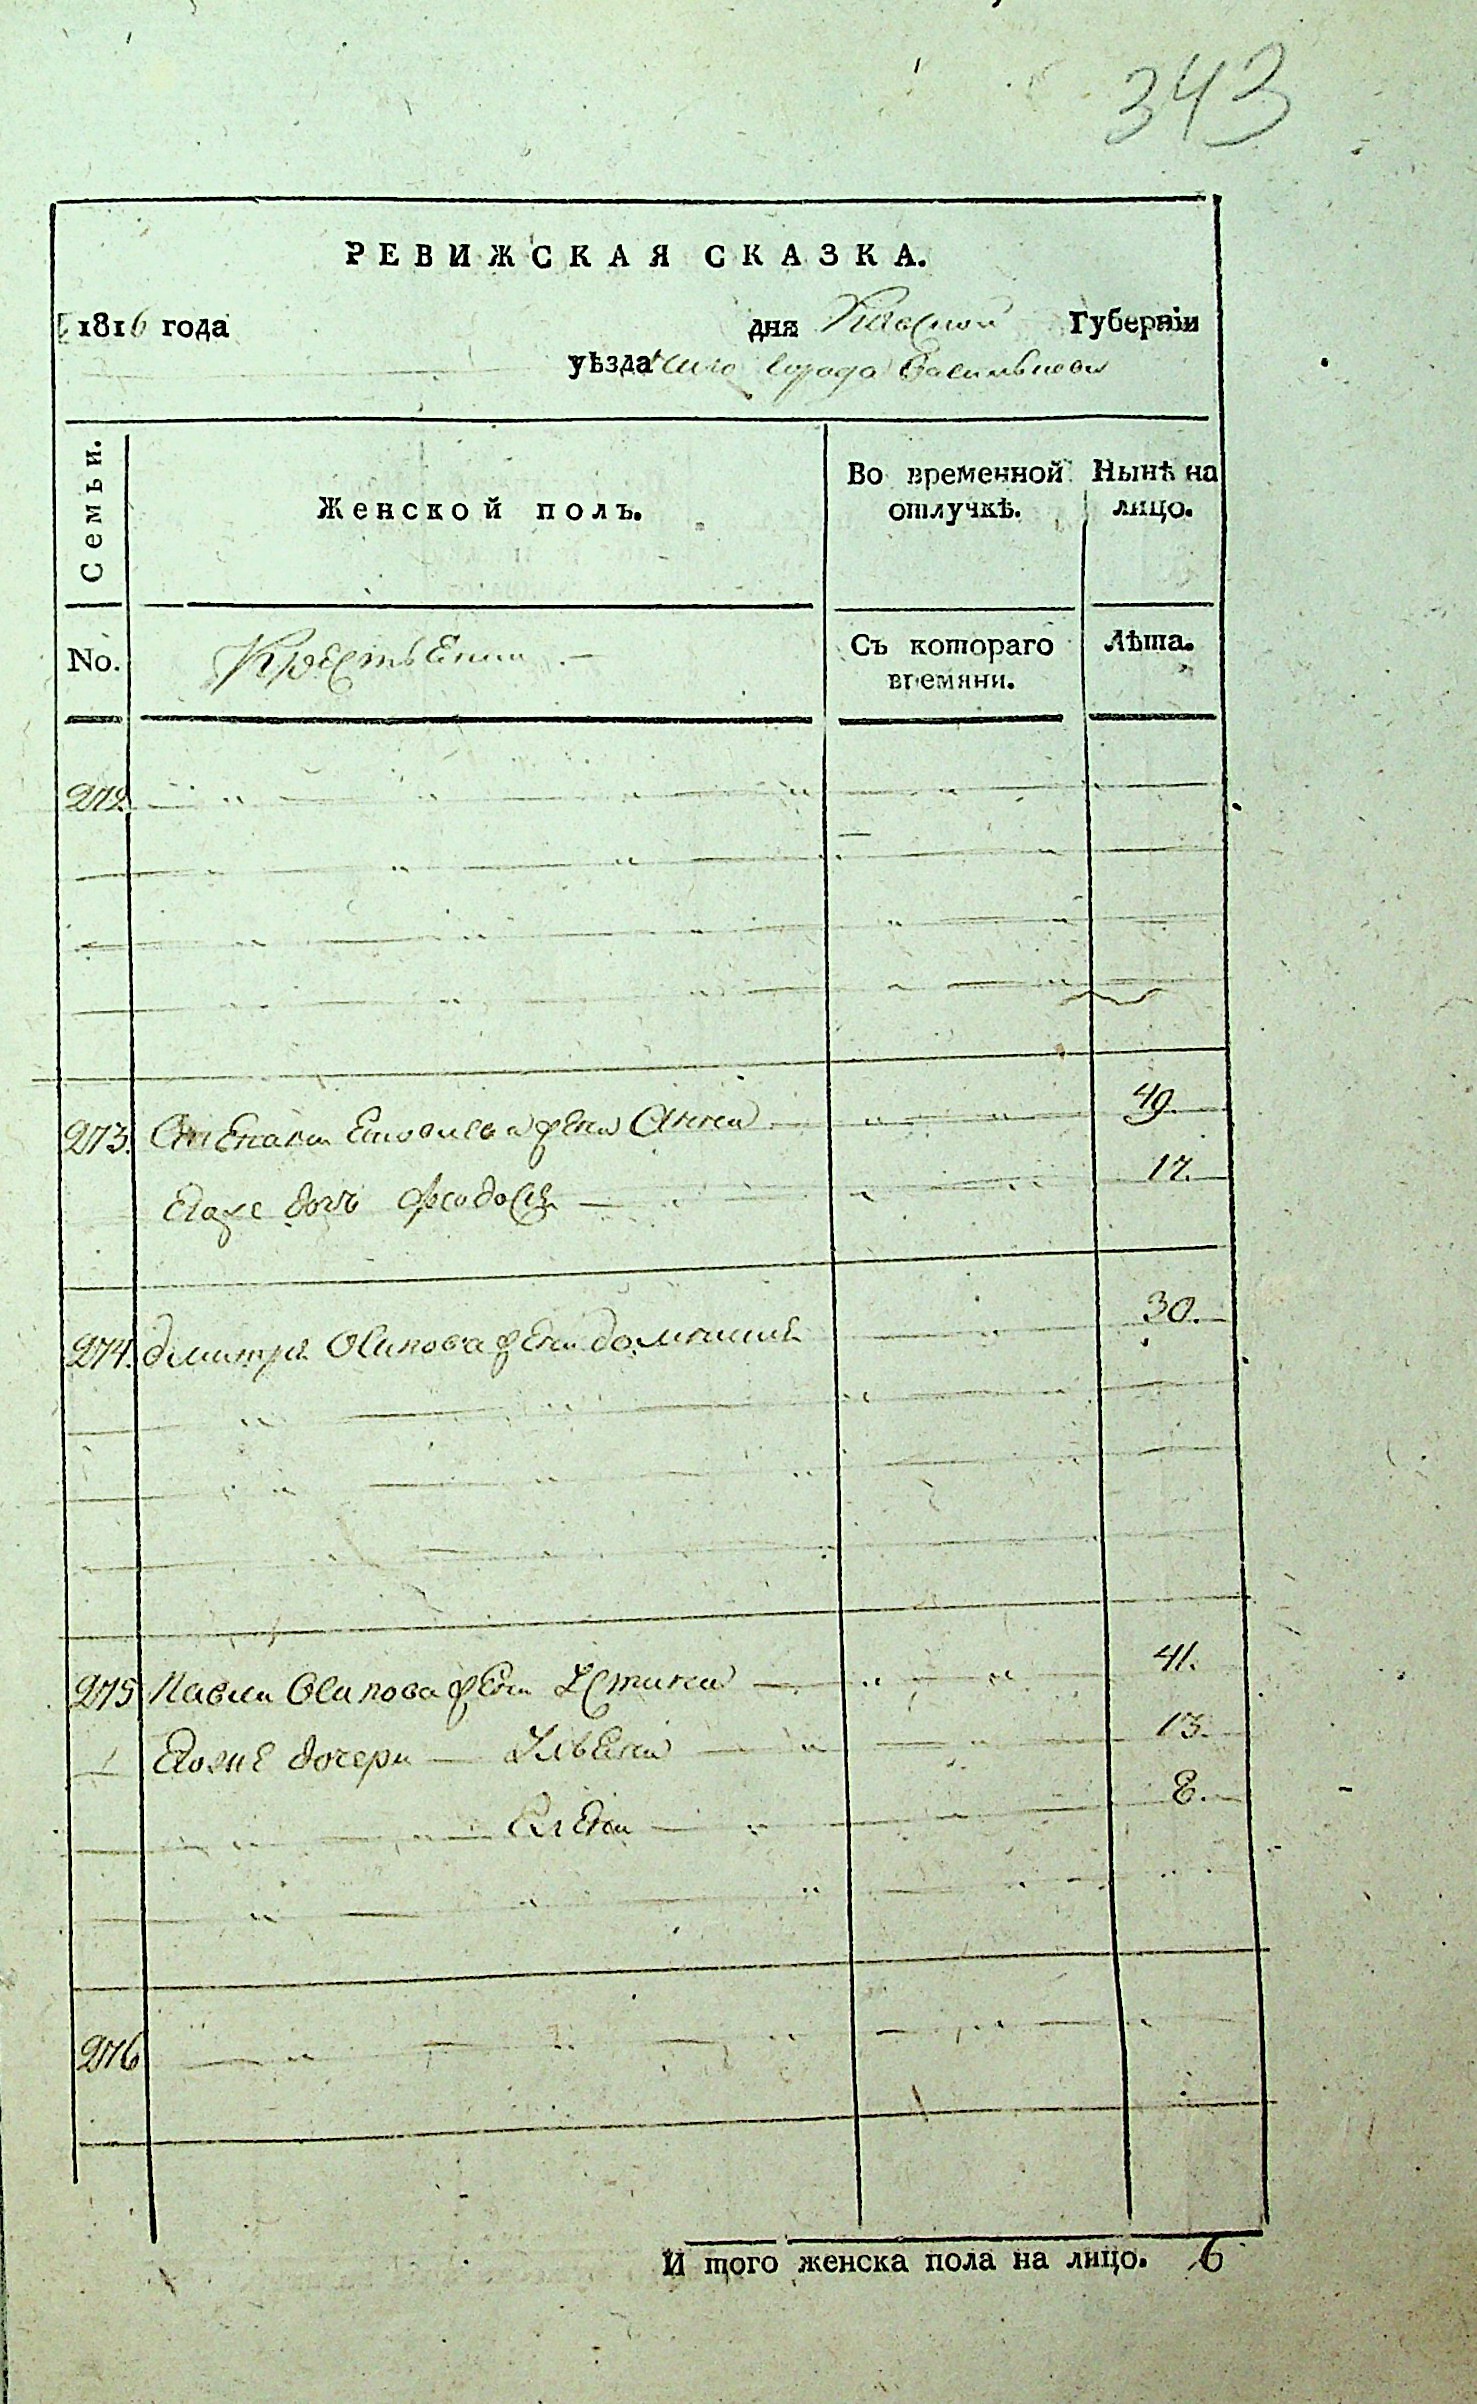 343
РЕВИЖСКАЯ СКАЗКА.
1816 года дня Киевской Губерніи
уѣзда города Василькова
Семьи. Женской полъ. Во временной отлучкѣ. Нынѣ на лицо.
No. Крестьяни Съ котораго времяни. Лѣта.
272.
273. Степана жена Анна 49.
Егоже дочь Феодосія 17.
274. Дмитрія Осипова жена Домникія 30.
275 Павла Осипова жена Устинія 41.
дочери Ульяна 13.
Елена 8.
276
И того женска пола на лицо. 6